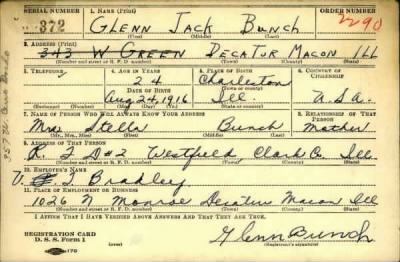 SERIAL NUMBER 1. NAME (Print) ORDER NUMBER
372 GLENN JACK BUNCH 2290
(First) (Middle) (Last)
2. ADDRESS (Print)
343 W GREEN DECATUR MACON ILL
(Number and street or R. F. D. number) (Town) (County) (State)
3. TELEPHONE 4. AGE IN YEARS 5. PLACE OF BIRTH 6. COUNTRY OF CITIZENSHIP
24 Charleston
DATE OF BIRTH (Town or county)
Aug 24, 1916 Ill. U.S.A.
(Exchange) (No.) (Mo.) (Day) (Yr.) (State or country)
7. NAME OF PERSON WHO WILL ALWAYS KNOW YOUR ADDRESS 8. RELATIONSHIP OF THAT PERSON
Mrs Stella Bunch Mother
(Mr., Mrs., Miss) (First) (Middle) (Last)
9. ADDRESS OF THAT PERSON
R. F D #2 Westfield Clark Co. Ill.
(Number and street or R. F. D. number) (Town) (County) (State)
10. EMPLOYER'S NAME
Bradley
11. PLACE OF EMPLOYMENT OR BUSINESS
1026 N Monroe Decatur Macon Ill
(Number and street or R. F. D. number) (Town) (County) (State)
I AFFIRM THAT I HAVE VERIFIED ABOVE ANSWERS AND THAT THEY ARE TRUE.
REGISTRATION CARD
D. S. S. Form 1
Glenn Bunch
(Registrant's signature)